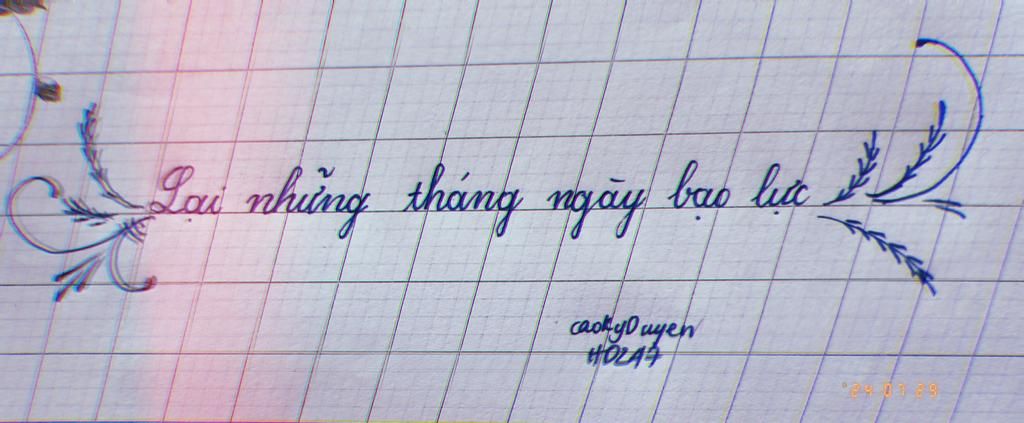 Lại những tháng ngày bạo lực
caoKyDuyen
HO2A7
'24 07 29